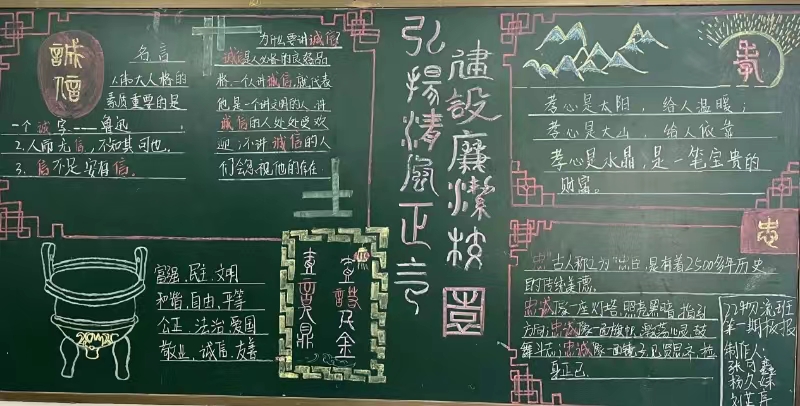 誠信
名言
1.伟大人格的
素质重要的是
一个诚字——鲁迅
2.人而无信,不知其可也。
3.信不足安有信。
为什么要讲诚信?
诚信是人必备的良好品
格,一个人讲诚信,就代表
他是一个讲文明的人,讲
诚信的人处处受欢
迎;不讲诚信的人
们会忽视他的存在
富强、民主、文明
和谐、自由、平等
公正、法治、爱国
敬业、诚信、友善
弘揚清風正气
建設廉潔校園
孝
孝心是太阳,给人温暖;
孝心是大山,给人依靠
孝心是水晶,是一笔宝贵的
财富。
忠
"忠"古人称之为"忠臣",是有着2500多年历史
的传统美德,
忠诚像一座灯塔,照亮黑暗,指引
方向;忠诚像一面旗帜,激荡心灵,鼓
舞斗志;忠诚像一面镜子,见贤思齐,
身正己.
22物流班
第一期板报
制作人: